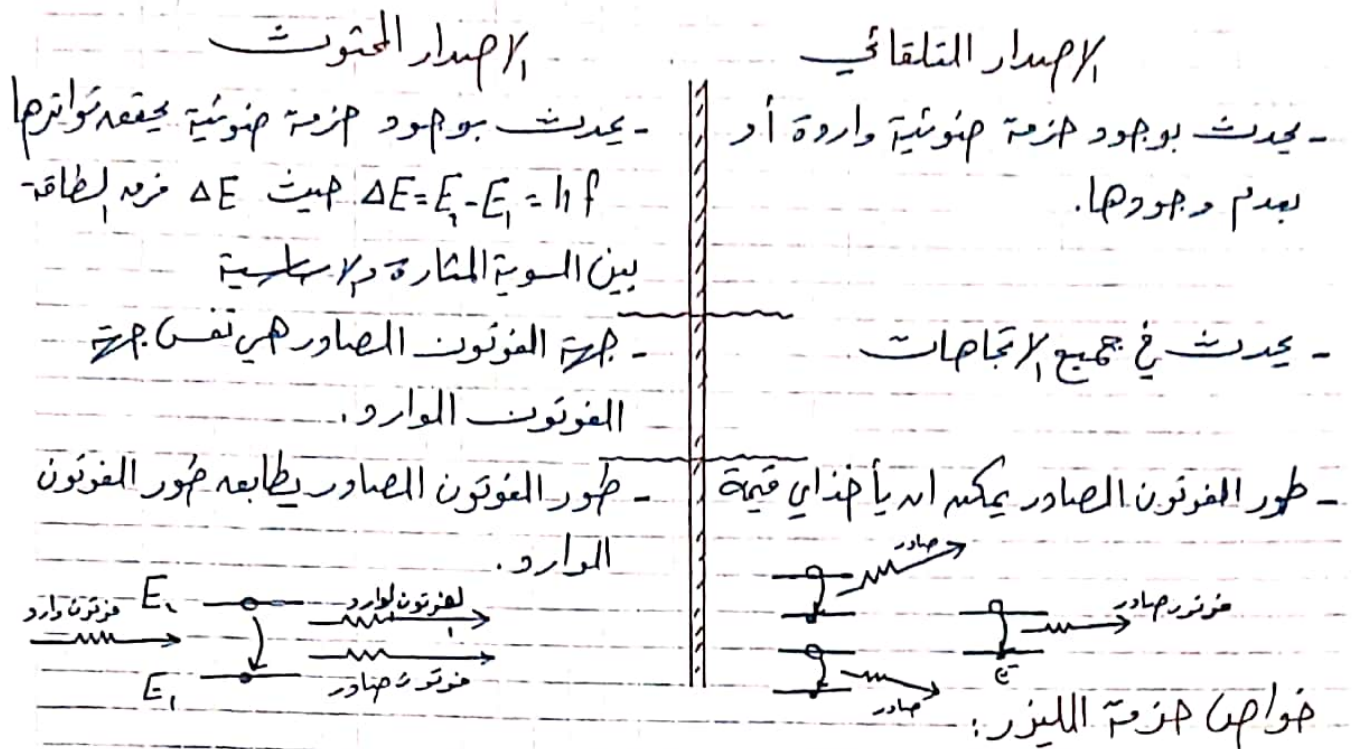 الإصدار التلقائي
- يحدث بوجود حزمة ضوئية واردة أو
بعدم وجودها.
- يحدث في جميع الاتجاهات
- طور الفوتون الصادر يمكن ان يأخذ اي قيمة
صادر
فوتون صادر
e⁻
صادر
الإصدار المحثوث
- يحدث بوجود حزمة ضوئية يحقق تواترها
ΔE = E₂ - E₁ = h f حيث ΔE فرق الطاقة
بين السوية المثارة والاساسية
- جهة الفوتون الصادر هي نفس جهة
الفوتون الوارد.
- طور الفوتون الصادر يطابق طور الفوتون
الوارد.
فوتون وارد
E₂
الفوتون الوارد
E₁
فوتون صادر
خواص حزمة الليزر: